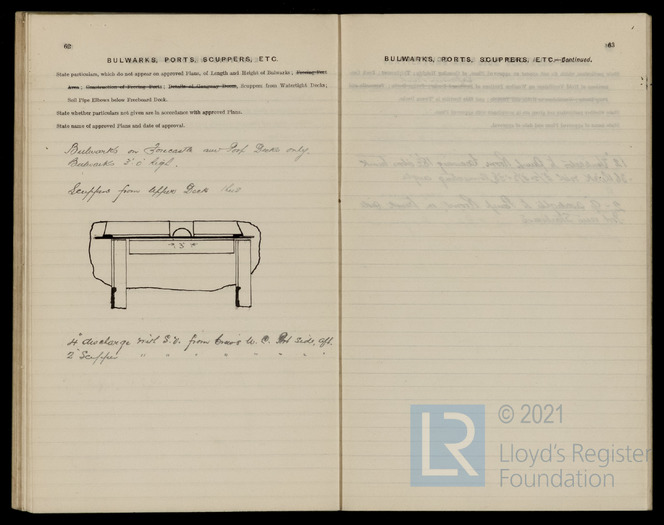 62
BULWARKS, PORTS, SCUPPERS, ETC.
State particulars, which do not appear on approved Plans, of Length and Height of Bulwarks; Freeing Port
Area; Construction of Freeing Ports; Details of Gangway Doors, Scuppers from Watertight Decks;
Soil Pipe Elbows below Freeboard Deck.
State whether particulars not given are in accordance with approved Plans.
State name of approved Plans and date of approval.
Bulwarks on Forecastle and Poop Decks only.
Bulwarks 3' 0" high.
Scuppers from Upper Deck
4" discharge with S.V. from Crews W.C. Port side, aft.
2" Scupper " " " " " " "
63
BULWARKS, PORTS, SCUPPERS, ETC.—Continued.
LR
© 2021
Lloyd's Register
Foundation